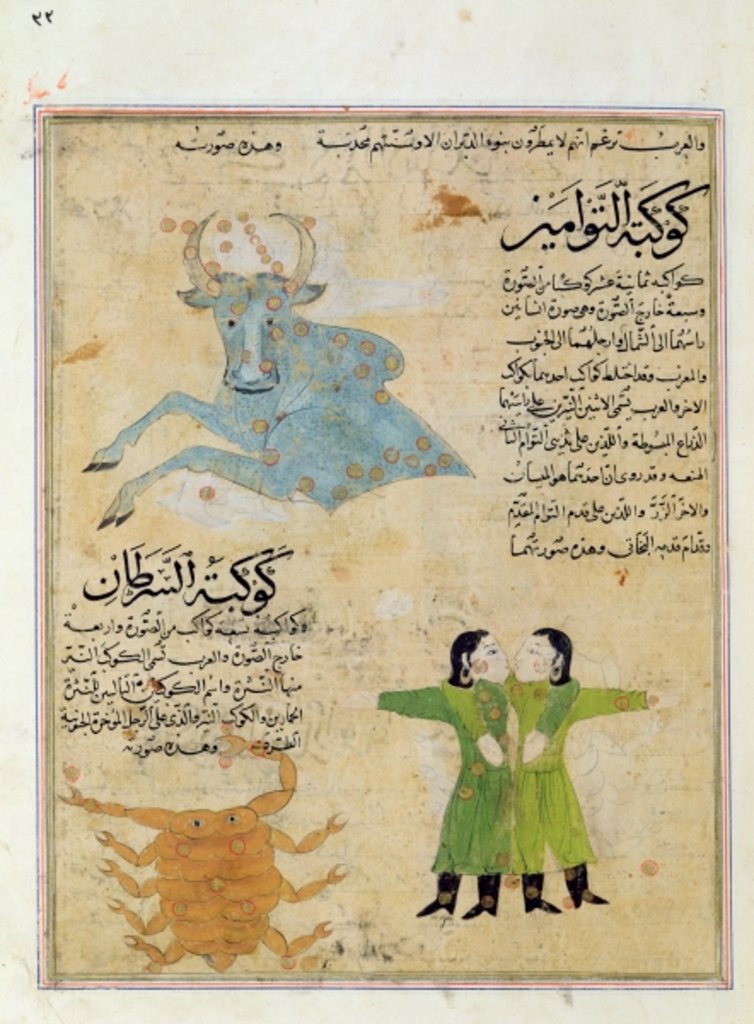 ٣٢
والعرب تزعم انهم لا يمطرون بنوء الدبران الا وسنتهم مجدبة وهذه صورته
كوكبة التوامين
كواكبه ثمانية عشر كوكبا من الصورة
وسبعة خارج الصورة وهي صورة انسانين
راسهما الى الشمال وارجلهما الى الجنوب
والمغرب وقد اختلط كواكب احديهما بكواكب
الاخر والعرب تسمى الاثنين النيرين على راسهما
الذراع المبسوطة واللذين على ثديي التوام الثاني
الهنعه وقد روى ان احدهما هو الميسان
والاخر الزر واللذين على قدم التوام المقدم
وقدام قدمه البخاتي وهذه صورتهما
كوكبة السرطان
وكواكبه تسعة كواكب من الصورة واربعة
خارج الصورة والعرب تسمى الكوكب النير
منها النثرة واسم الكوكبين التاليين للنثرة
الحمارين والكوكب النير الذى على الرجل الموخرة الجنوبية
الطرفة وهذه صورته